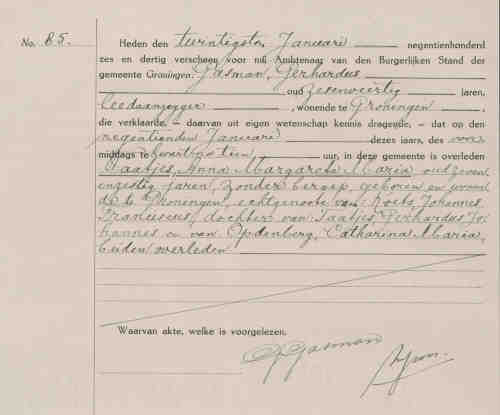 No. 85.
Heden den twintigsten Januari negentienhonderd
zes en dertig verscheen voor mij Ambtenaar van den Burgerlijken Stand der
gemeente Groningen: Gasman, Gerhardus
oud zesenveertig jaren,
leedaanzegger, wonende te Groningen,
die verklaarde, — daarvan uit eigen wetenschap kennis dragende, — dat op den
negentienden Januari dezes jaars, des voor
middags te kwart over tien uur, in deze gemeente is overleden
Taatjes, Anna Margareta Maria oud zeven
enzestig jaren, zonder beroep, geboren en wonen
de te Groningen, echtgenoote van Roelfs Johannes
Franciscus, dochter van Taatjes, Gerhardus Jo
hannes en van Opdenberg, Catharina Maria,
beiden overleden
Waarvan akte, welke is voorgelezen.
G Gasman